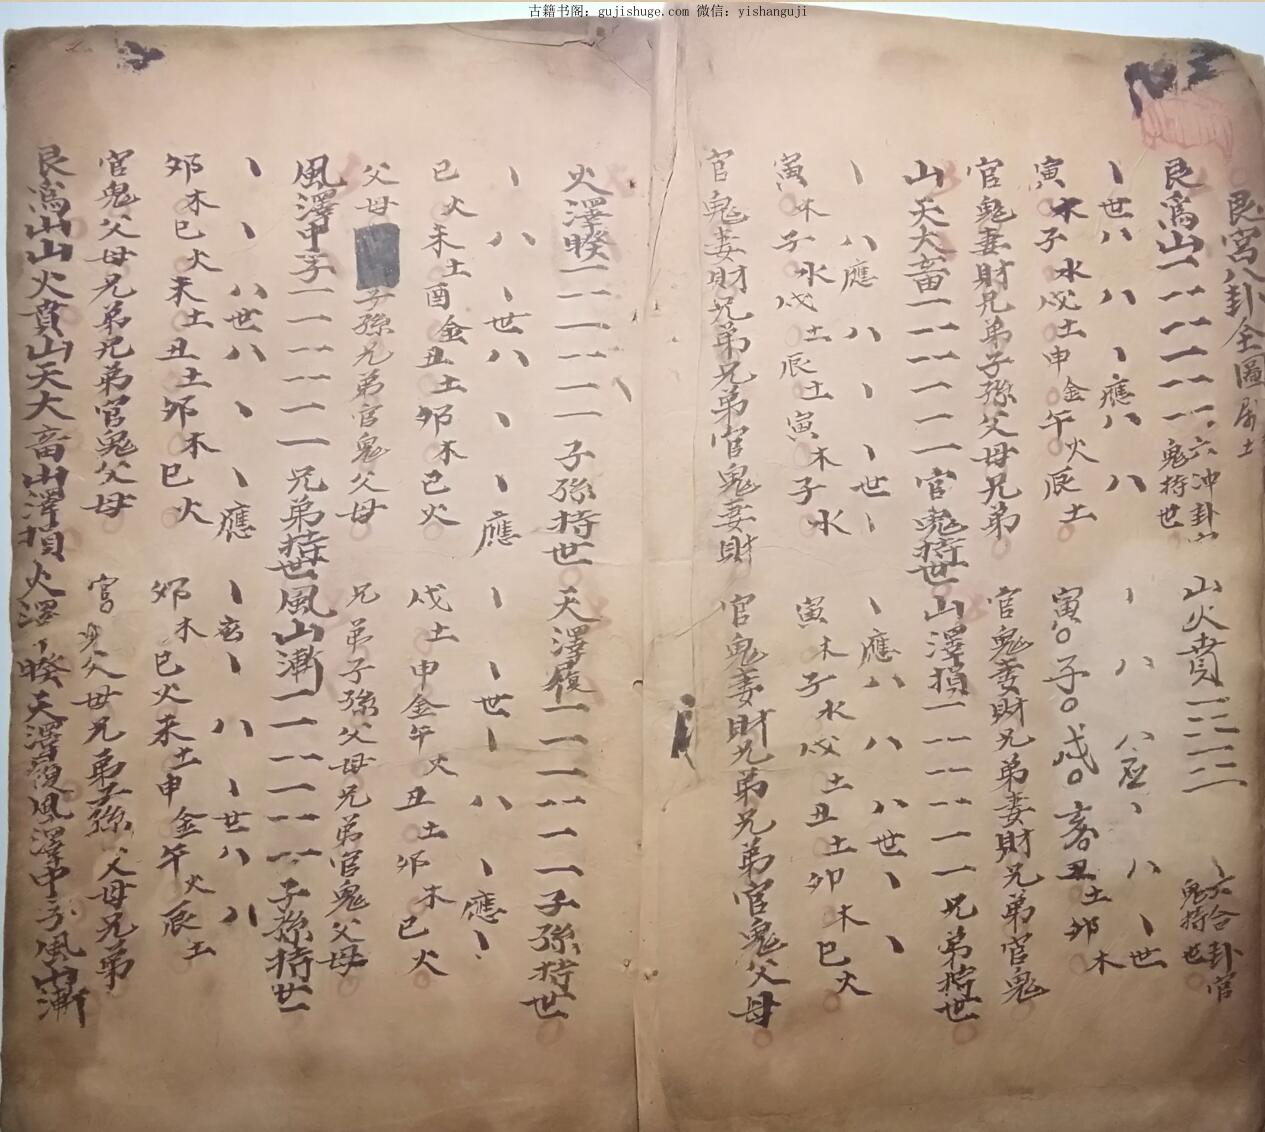 古籍书阁：gujishuge.com 微信：yishanguji
艮宮八卦全圖屬土
艮為山 六冲卦
鬼持世
丶世八 八 丶應八 八
寅木子水戌土申金午火辰土
官鬼妻財兄弟子孫父母兄弟
山天大畜 官鬼持世
丶 八應 八 丶 丶世 丶
寅木子水戌土辰土寅木子水
官鬼妻財兄弟兄弟官鬼妻財
山火賁 六合卦官
鬼持世
丶 八 八應 丶 八 丶世
寅〇子〇戌〇亥 丑土卯木
官鬼妻財兄弟妻財兄弟官鬼
山澤損 兄弟持世
丶應八 八 八世 丶 丶
寅木子水戌土丑土卯木巳火
官鬼妻財兄弟兄弟官鬼父母
火澤睽 子孫持世
丶 八 丶世八 丶 丶應
巳火未土酉金丑土卯木巳火
父母 子孫兄弟官鬼父母
風澤中孚 兄弟持世
丶 丶 八世八 丶 丶應
卯木巳火未土丑土卯木巳火
官鬼父母兄弟兄弟官鬼父母
天澤履 子孫持世
丶 丶世丶 八 丶應丶
戌土申金午火丑土卯木巳火
兄弟子孫父母兄弟官鬼父母
風山漸 子孫持世
丶應丶 八 丶世八 八
卯木巳火未土申金午火辰土
官鬼父母兄弟子孫父母兄弟
艮為山山火賁山天大畜山澤損火澤睽天澤履風澤中孚風山漸